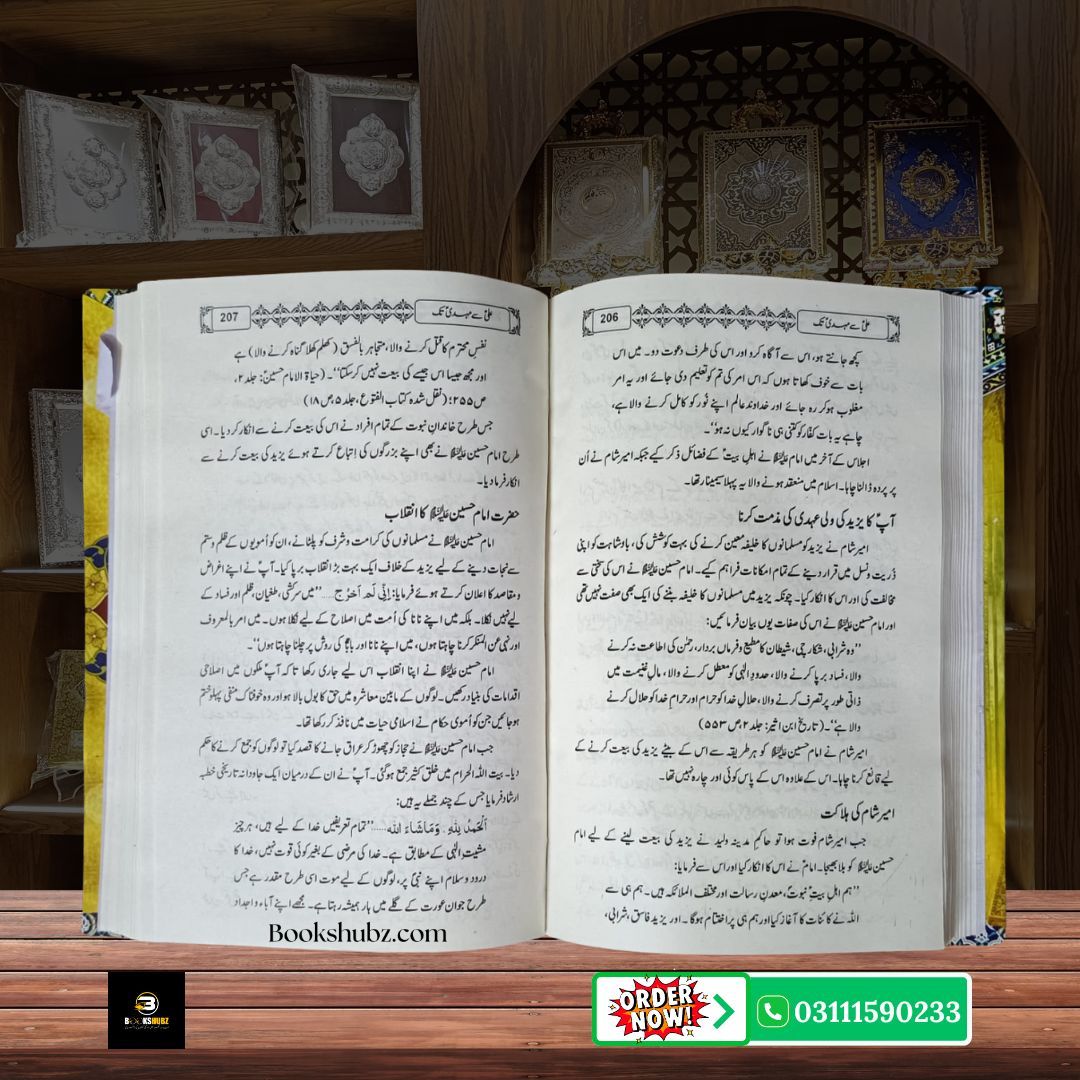 206
علیؑ سے مہدیؑ تک
کچھ جانتے ہو، اس سے آگاہ کرو اور اس کی طرف دعوت دو۔ میں اس
بات سے خوف کھاتا ہوں کہ اس امر کی تم کو تعلیم دی جائے اور یہ امر
مغلوب ہو کر رہ جائے اور خداوند عالم اپنے نُور کو کامل کرنے والا ہے،
چاہے یہ بات کفار کو کتنی ہی ناگوار کیوں نہ ہو‘‘۔
اجلاس کے آخر میں امام علیہ السلام نے اہلِ بیتؑ کے فضائل ذکر کیے جبکہ امیر شام نے اُن
پر پردہ ڈالنا چاہا۔ اسلام میں منعقد ہونے والا یہ پہلا سیمینار تھا۔
آپؑ کا یزید کی ولی عہدی کی مذمت کرنا
امیر شام نے یزید کو مسلمانوں کا خلیفہ معین کرنے کی بہت کوشش کی، بادشاہت کو اپنی
ذُریت و نسل میں قرار دینے کے تمام امکانات فراہم کیے۔ امام حسین علیہ السلام نے اس کی سختی سے
مخالفت کی اور اس کا انکار کیا۔ چونکہ یزید میں مسلمانوں کا خلیفہ بننے کی ایک بھی صفت نہیں تھی
اور امام حسین علیہ السلام نے اس کی صفات یوں بیان فرمائیں:
’’وہ شرابی، شکارچی، شیطان کا مطیع و فرماں بردار، رحمٰن کی اطاعت نہ کرنے
والا، فساد برپا کرنے والا، حدودِ الٰہی کو معطل کرنے والا، مالِ غنیمت میں
ذاتی طور پر تصرف کرنے والا، حلالِ خدا کو حرام اور حرامِ خدا کو حلال کرنے
والا ہے‘‘۔ (تاریخ ابن اثیر: جلد ۲، ص ۵۵۳)
امیر شام نے امام حسین علیہ السلام کو ہر طریقہ سے اس کے بیٹے یزید کی بیعت کرنے کے
لیے قانع کرنا چاہا۔ اس کے علاوہ اس کے پاس کوئی اور چارہ نہیں تھا۔
امیر شام کی ہلاکت
جب امیر شام فوت ہوا تو حاکم مدینہ ولید نے یزید کی بیعت لینے کے لیے امام
حسین علیہ السلام کو بلا بھیجا۔ امامؑ نے اس کا انکار کیا اور اس سے فرمایا:
’’ہم اہلِ بیتِ نبوت، معدنِ رسالت اور مختلف الملائکہ ہیں۔ ہم ہی سے
اللہ نے کائنات کا آغاز کیا اور ہم ہی پر اختتام ہوگا۔ اور یزید فاسق، شرابی،
207
علیؑ سے مہدیؑ تک
نفسِ محترم کا قتل کرنے والا، متجاہر بالفسق (کھلم کھلا گناہ کرنے والا) ہے
اور مجھ جیسا اس جیسے کی بیعت نہیں کر سکتا‘‘۔ (حیاۃ الامام حسینؑ: جلد ۲،
ص ۲۵۵؛ (نقل شدہ کتاب الفتوح، جلد ۵، ص ۱۸)
جس طرح خاندانِ نبوت کے تمام افراد نے اس کی بیعت کرنے سے انکار کر دیا۔ اسی
طرح امام حسین علیہ السلام نے بھی اپنے بزرگوں کی اِتباع کرتے ہوئے یزید کی بیعت کرنے سے
انکار فرما دیا۔
حضرت امام حسین علیہ السلام کا انقلاب
امام حسین علیہ السلام نے مسلمانوں کی کرامت و شرف کو پلٹانے، ان کو اُمویوں کے ظلم و ستم
سے نجات دینے کے لیے یزید کے خلاف ایک بہت بڑا انقلاب برپا کیا۔ آپؑ نے اپنے اغراض
و مقاصد کا اعلان کرتے ہوئے فرمایا: اِنِّی لَم اَخرُج..... ’’میں سرکشی، طغیان، ظلم اور فساد کے
لیے نہیں نکلا۔ بلکہ میں اپنے نانا کی اُمت میں اصلاح کے لیے نکلا ہوں۔ میں امر بالمعروف
اور نہی عن المنکر کرنا چاہتا ہوں، میں اپنے نانا اور باباؑ کی روش پر چلنا چاہتا ہوں‘‘۔
امام حسین علیہ السلام نے اپنا انقلاب اس لیے جاری رکھا تاکہ آپؑ ملکوں میں اصلاحی
اقدامات کی بنیاد رکھیں۔ لوگوں کے مابین معاشرہ میں حق کا بول بالا ہو اور وہ خوفناک منفی پہلو ختم
ہو جائیں جن کو اُموی حکام نے اسلامی حیات میں نافذ کر رکھا تھا۔
جب امام حسین علیہ السلام نے حجاز کو چھوڑ کر عراق جانے کا قصد کیا تو لوگوں کو جمع کرنے کا حکم
دیا۔ بیت اللہ الحرام میں خلق کثیر جمع ہوگئی۔ آپؑ نے ان کے درمیان ایک جاودانہ تاریخی خطبہ
ارشاد فرمایا جس کے چند جملے یہ ہیں:
اَلحَمدُ لِلّٰہِ، وَمَاشَاءَ اللہ..... ’’تمام تعریفیں خدا کے لیے ہیں، ہر چیز
مشیتِ الٰہی کے مطابق ہے۔ خدا کی مرضی کے بغیر کوئی قوت نہیں، خدا کا
درود و سلام اپنے نبی پر، لوگوں کے لیے موت اسی طرح مقدر ہے جس
طرح جوان عورت کے گلے میں ہار ہمیشہ رہتا ہے۔ مجھے اپنے آباء و اجداد
Bookshubz.com
BOOKSHUBZ
ORDER
NOW!
03111590233